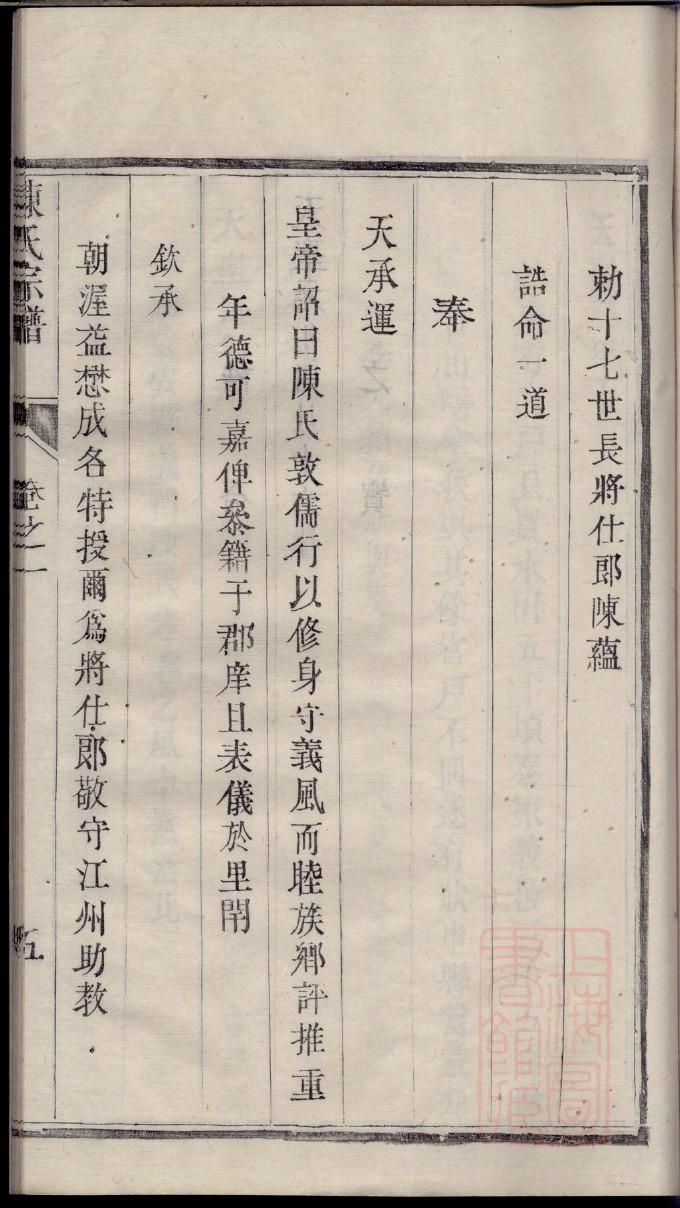 勅十七世長將仕郎陳蘊
誥命一道
奉
天承運
皇帝詔曰陳氏敦儒行以修身守義風而睦族鄉評推重
年德可嘉俾叅籍于郡庠且表儀於里閈
欽承
朝渥葢懋成名特授爾為將仕郎敬守江州助教
陳氏宗譜
卷之一
五
上海圖書館藏